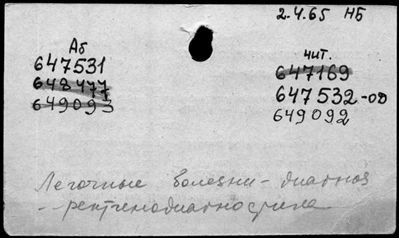 2.4.65 НБ
Аб
647531
648477
649093
чит.
647169
647532-од
649092
Легочные болезни - диагноз
- рентгенодиагностика